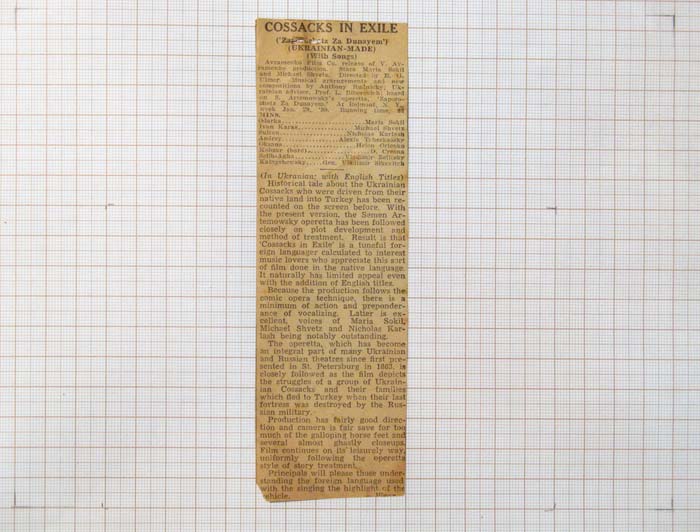 COSSACKS IN EXILE
('Zaporozhetz Za Dunayem')
(UKRAINIAN-MADE)
(With Songs)
Avramenko Film Co. release of V. Av-
ramenko production. Stars Maria Sokil
and Michael Shvetz. Directed by E. G.
Ulmer. Musical arrangements and new
compositions by Anthony Rudnicky; Uk-
rainian adviser, Prof. L. based
on S. Artemowsky's operetta, 'Zaporo-
zhetz Za Dunayem.' At Belmont, N. Y.,
week Jan. 28, '39. Running time,
MINS.
Odarka Maria Sokil
Ivan Karas Michael Shvetz
Sultan Nicholas Karlash
Andrey Alexis Tcherkassky
Oksana Helen Orlenko
Kobzar (bard) D. Creona
Selih-Agha Vladimir Zelitsky
Gen. Vladimir Sikevitch
(In Ukranian; with English Titles)
Historical tale about the Ukrainian
Cossacks who were driven from their
native land into Turkey has been re-
counted on the screen before. With
the present version, the Semen Ar-
temowsky operetta has been followed
closely on plot development and
method of treatment. Result is that
'Cossacks in Exile' is a tuneful for-
eign languager calculated to interest
music lovers who appreciate this sort
of film done in the native language.
It naturally has limited appeal even
with the addition of English titles.
Because the production follows the
comic opera technique, there is a
minimum of action and preponder-
ance of vocalizing. Latter is ex-
cellent, voices of Maria Sokil,
Michael Shvetz and Nicholas Kar-
lash being notably outstanding.
The operetta, which has become
an integral part of many Ukrainian
and Russian theatres since first pre-
sented in St. Petersburg in 1863, is
closely followed as the film depicts
the struggles of a group of Ukrain-
ian Cossacks and their families
which fled to Turkey when their last
fortress was destroyed by the Rus-
sian military.
Production has fairly good direc-
tion and camera is fair save for too
much of the galloping horse feet and
several almost ghastly closeups.
Film continues on its leisurely way,
uniformly following the operetta
style of story treatment.
Principals will please those under-
standing the foreign language used
with the singing the highlight of the
vehicle.